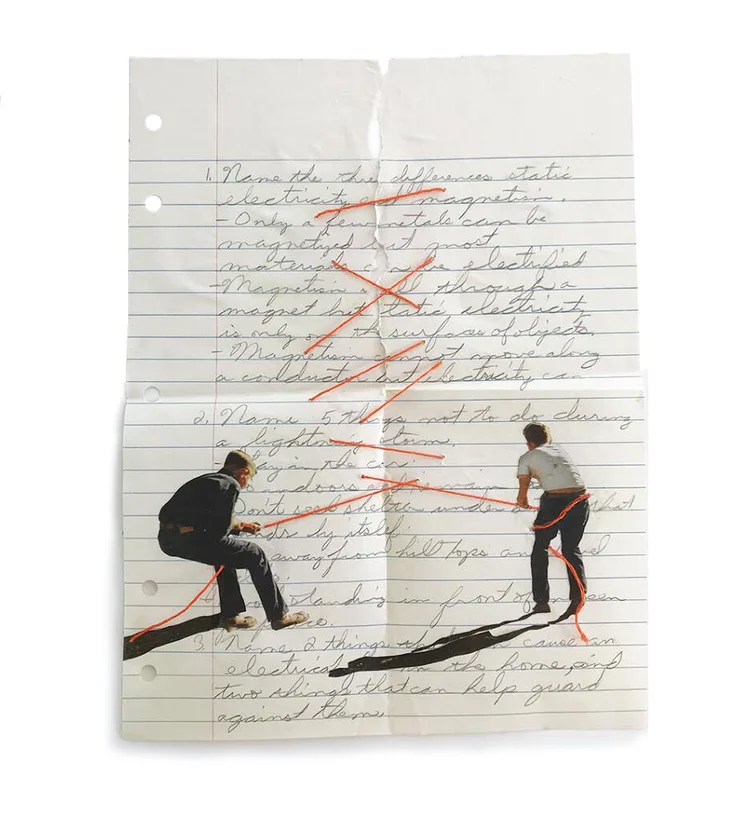 1. Name the thre differences static
electricity and magnetism.
- Only a few metals can be
magnetized but most
materials can be electrified
- Magnetism all through a
magnet but static electricity
is only on the surface of objects.
- Magnetism cannot move along
a conductor but electricity can
2. Name 5 things not to do during
a lightning storm.
in the
doors main
Don't seek shelter under that
by itself.
away from hill tops an
standing in front of
3. Name 2 things cause an
electrical in the home, and
two things that can help guard
against them.